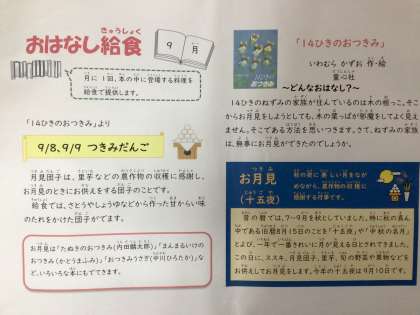 おはなし給食
きゅうしょく
9 月
月に1回、本の中に登場する料理を
給食で提供します。
「14ひきのおつきみ」より
9/8、9/9 つきみだんご
月見団子は、里芋などの農作物の収穫に感謝し、
お月見のときにお供えをする団子のことです。
給食では、さとうやしょうゆなどから作った甘からい味
のたれをかけた団子がでます。
お月見は「たぬきのおつきみ(内田麟太郎)」、「まんまるいけの
おつきみ(かとうまふみ)」「おつきみうさぎ(中川ひろたか)」な
ど、いろいろな本にもでてきます。
「14ひきのおつきみ」
いわむら かずお 作・絵
童心社
〜どんなおはなし?〜
14ひきのねずみの家族が住んでいるのは木の根っこ。そこ
からお月見をしようとしても、木の葉っぱが邪魔をしてよく見え
ません。そこである方法を思いつきます。さて、ねずみの家族
は、無事にお月見ができたのでしょうか。
つきみ
お月見
じゅうごや
(十五夜)
秋の夜に美しい月をなが
めながら、農作物の収穫に
感謝する行事です。
昔の暦では、7〜9月を秋としていました。特に秋の真ん
中である旧暦8月15日のことを「十五夜」や「中秋の名月」
とよび、一年で一番きれいに月が見える日とされてきました。
この日に、ススキ、月見団子、里芋、旬の野菜や果物などを
お供えしてお月見をします。今年の十五夜は9月10日です。